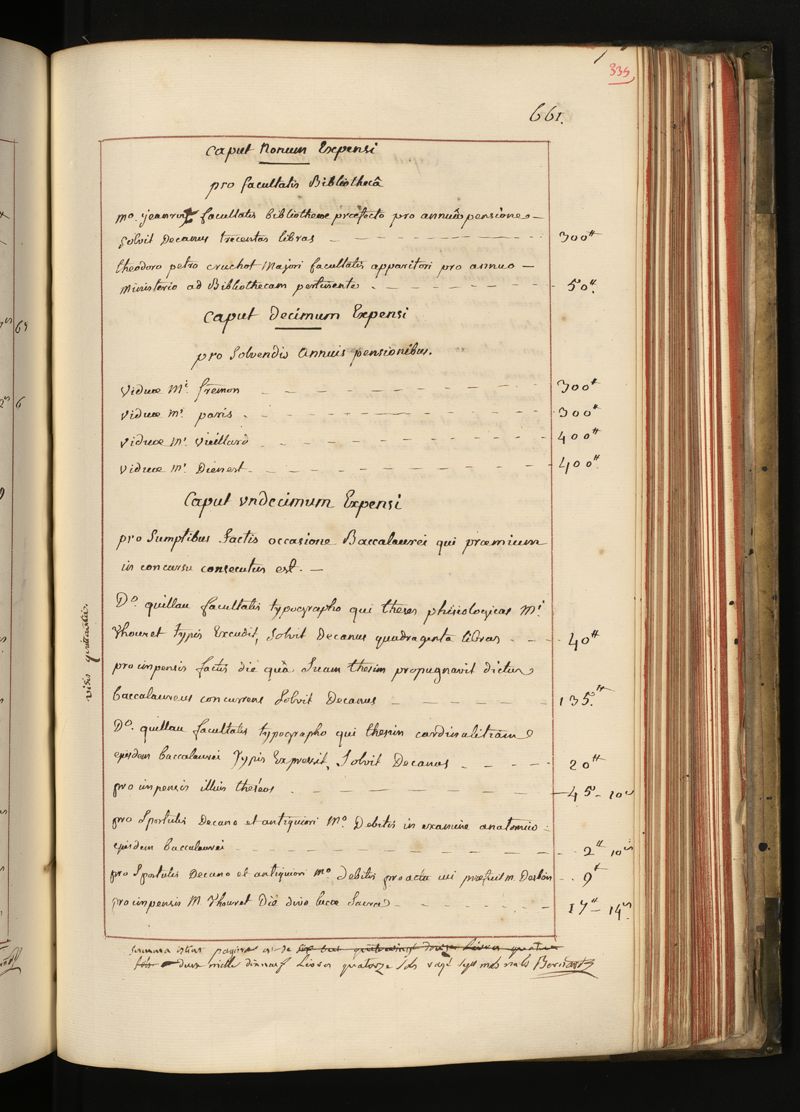 335
661.
Caput Nonum Expensi
pro facultatis Bibliothecâ
mo. jeanroy facultatis bibliothecæ præfecto pro annuâ pensione
solvit Decanus trecentas libras 300tt
theodoro petro cruchot Majori facultatis apparitori pro annuo
Ministerio ad Bibliothecam pertinente 50tt.
Caput Decimum Expensi
pro Solvendis Annuis pensionibus.
viduæ Mi. fremon 300tt
viduæ mi. paris 300tt
viduæ Mi. Vieillard 400tt
viduæ Mi. Dienest 400tt.
Caput Vndecimum Expensi
pro Sumptibus factis occasione Baccalaurei qui præmium
in concursu consecutus est.
Do. quillau facultatis typographo qui theses phisiologicas Mi.
Thouret typis Excudit, Solvit Decanus quadraginta libras 40tt
pro impensis factis die quâ Suam thesim propugnavit dictus
baccalaureus concurrens Solvit Decanus 135tt.
Do. quillau facultatis typographo qui thesim cardinalitiam
ejusdem baccalaurei Typis Expressit, Solvit Decanus 20tt
pro impensis illius theseos 45 - 10s
pro Sportulis Decano et antiquiori Mo. Debitis in examine anatomico
ejusdem baccalaurei 2tt 10s
pro Sportulis Decano et antiquiori mo. debitis pro actu cui præfuit m. 9tt
pro impensis M. Thouret Die divo lucæ Sacra 17tt - 14s
summa istius paginæ est de
deux mille dixneuf Livres quatorze sols